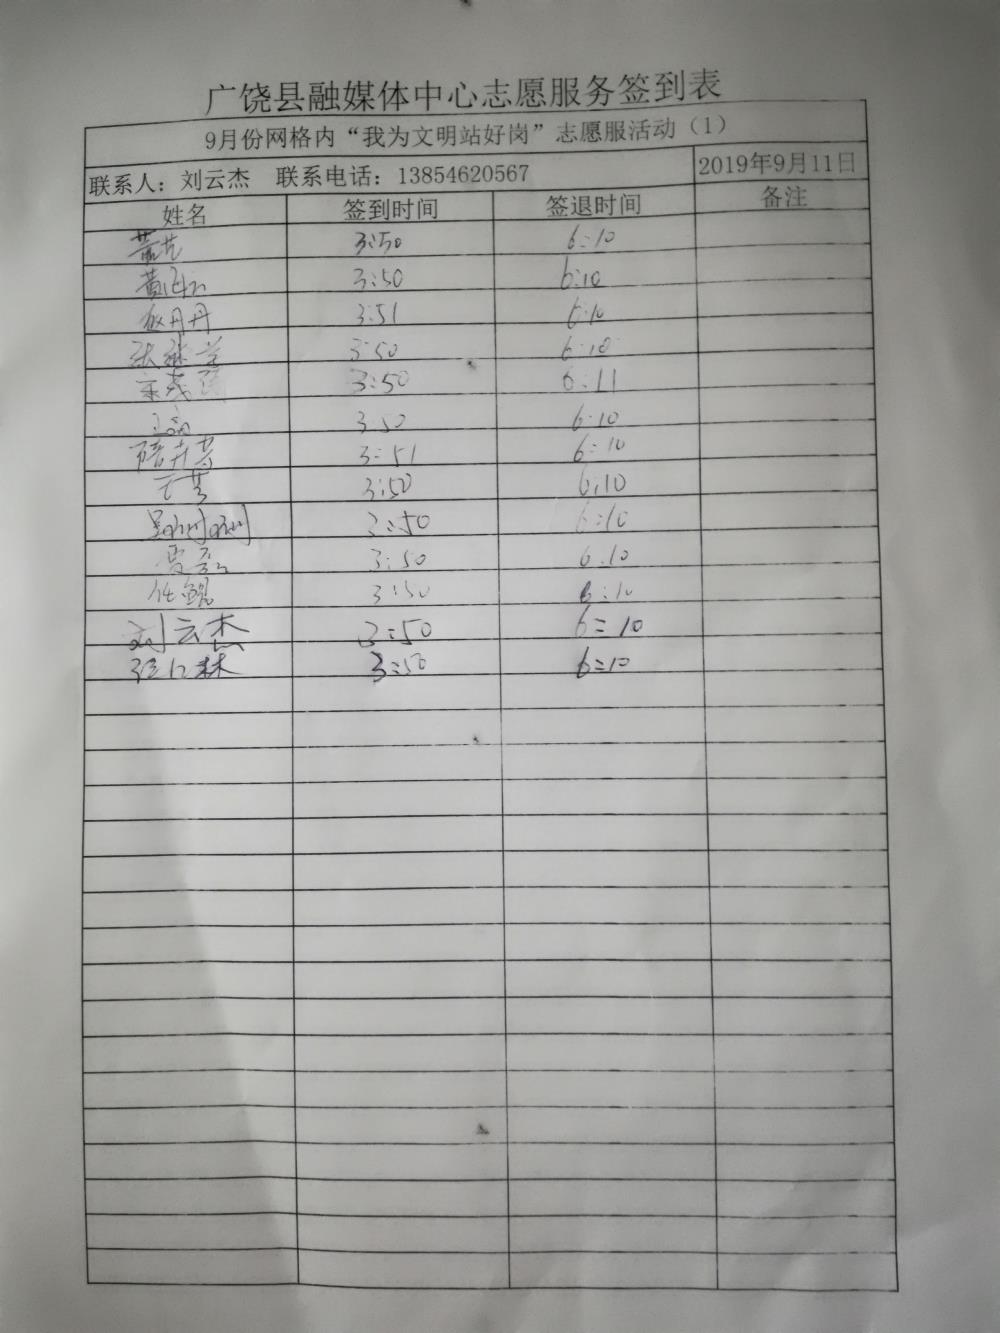 广饶县融媒体中心志愿服务签到表
9月份网格内“我为文明站好岗”志愿服活动（1）
联系人：刘云杰 联系电话：13854620567 2019年9月11日
姓名 签到时间 签退时间 备注
3:50 6:10
3:50 6:10
丹丹 3:51 6:10
3:50 6:10
3:50 6:11
3:50 6:10
3:51 6:10
3:50 6:10
3:50 6:10
3:50 6:10
任 3:50 6:10
刘云杰 3:50 6:10
3:50 6:10